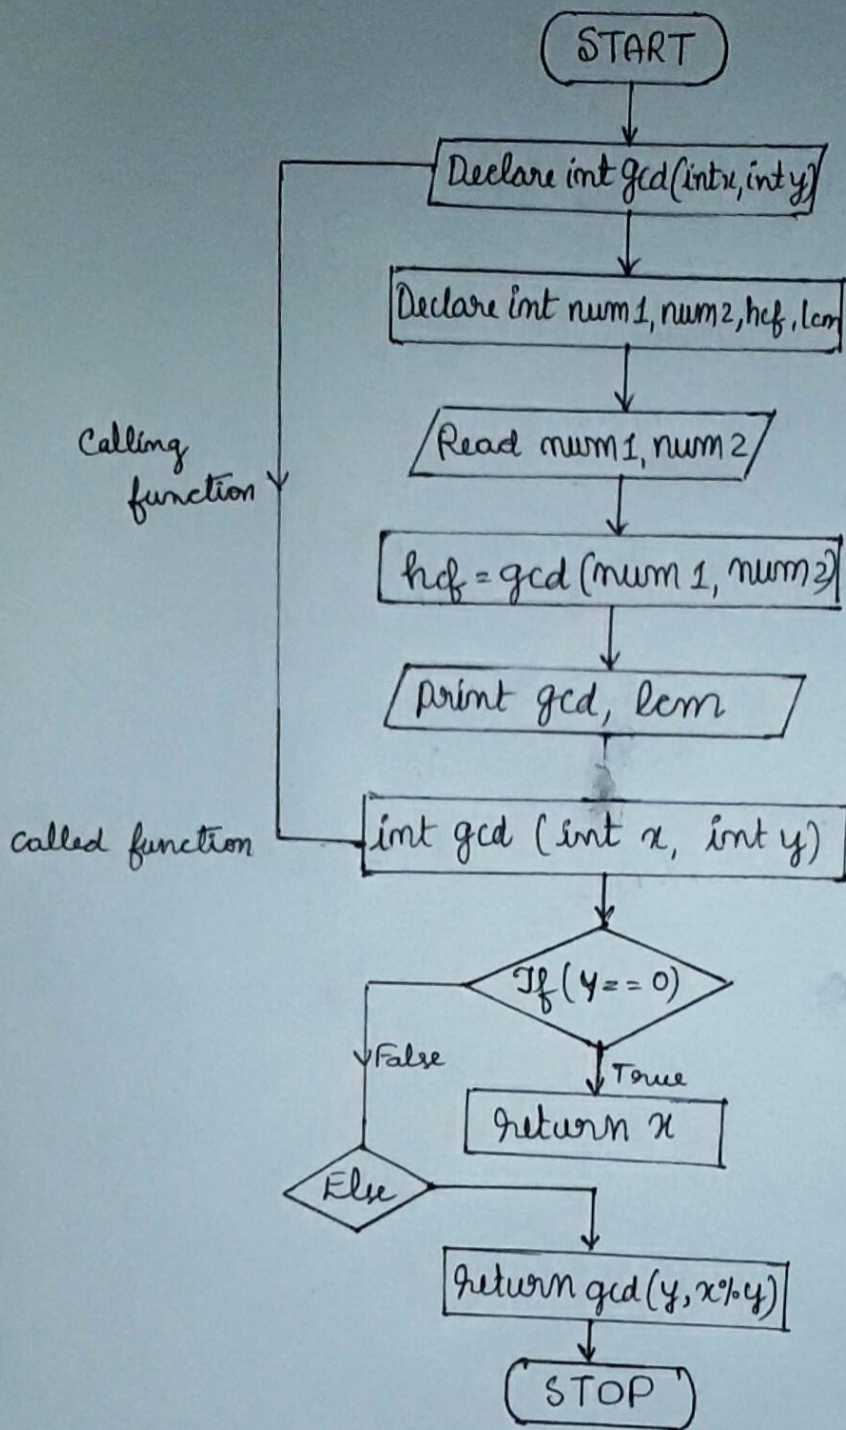 START
Declare int gcd(int x, int y)
Declare int num1, num2, hcf, lcm
Calling
function
Read num1, num2
hcf = gcd (num 1, num 2)
print gcd, lcm
called function
int gcd (int x, int y)
If (y == 0)
False
True
return x
Else
return gcd (y, x%y)
STOP